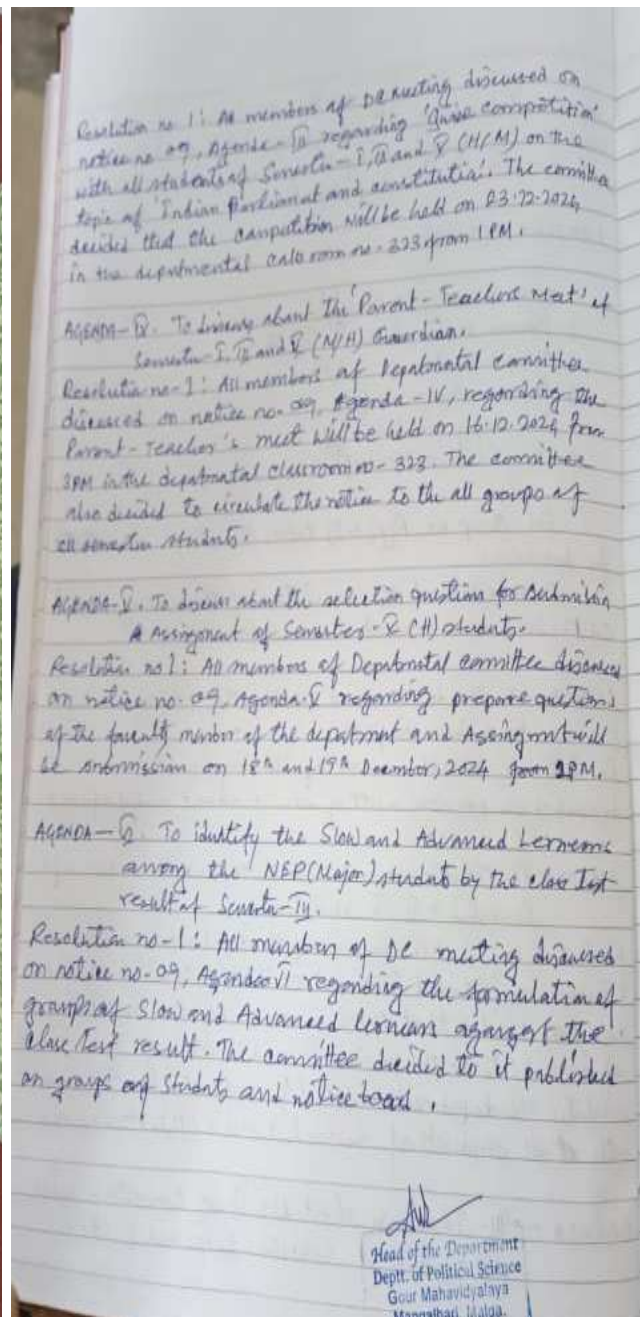 Resolution no 1: All members of DC meeting discussed on
notice no 09, Agenda-III regarding 'Quize competition'
with all students of Semester-I, III and V (H/M) on the
topic of 'Indian Parliamat and constitution'. The committee
decided that the competition will be held on 03.12.2024
in the departmental class room no. 323 from 1 PM.
AGENDA-IV. To discuss about the 'Parent-Teachers Meet' of
Semester-I, III and V (M/H) Guardian.
Resolution no-1: All members of Depatmental committee
discussed on notice no. 09, Agenda-IV, regording the
Parent-Teacher's meet will be held on 16.12.2024 from
2PM in the depatmental classroom no-323. The committee
also decided to circulate the notice to the all groups of
all semester students.
AGENDA-V. To discuss about the selection question for Submission
Assignment of Semester-V (H) students.
Resolution no 1: All members of Depatmental committee discussed
on notice no. 09, Agenda-V regarding prepare questions
of the faculty member of the department and Assingment will
be submission on 18th and 19th December, 2024 from PM.
AGENDA-VI. To identify the Slow and Advanced Lerners
among the NEP(Major) students by the class Test
result of Semester-III.
Resolution no-1: All members of DC meeting discussed
on notice no-09, Agenda VI regarding the formulation of
groups of Slow and Advanced lerners against the
class Test result. The committee decided to it published
on groups of Students and notice board.
Head of the Department
Deptt. of Political Science
Gour Mahavidyalaya
Mangalbari, Malda.